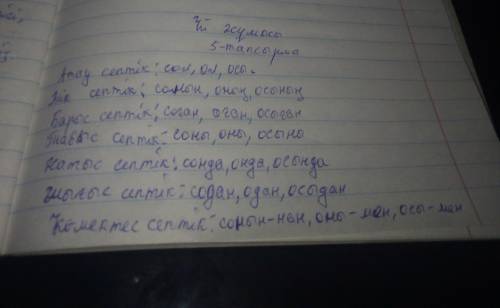 Үй жұмысы
5-тапсырма
Атау септік: сол, ол, осы.
Ілік септік: соның, оның, осының
Барыс септік: соған, оған, осыған
Табыс септік: соны, оны, осыны
Жатыс септік: сонда, онда, осында
Шығыс септік: содан, одан, осыдан
Көмектес септік: соның-нан, оны-мен, осы-мен